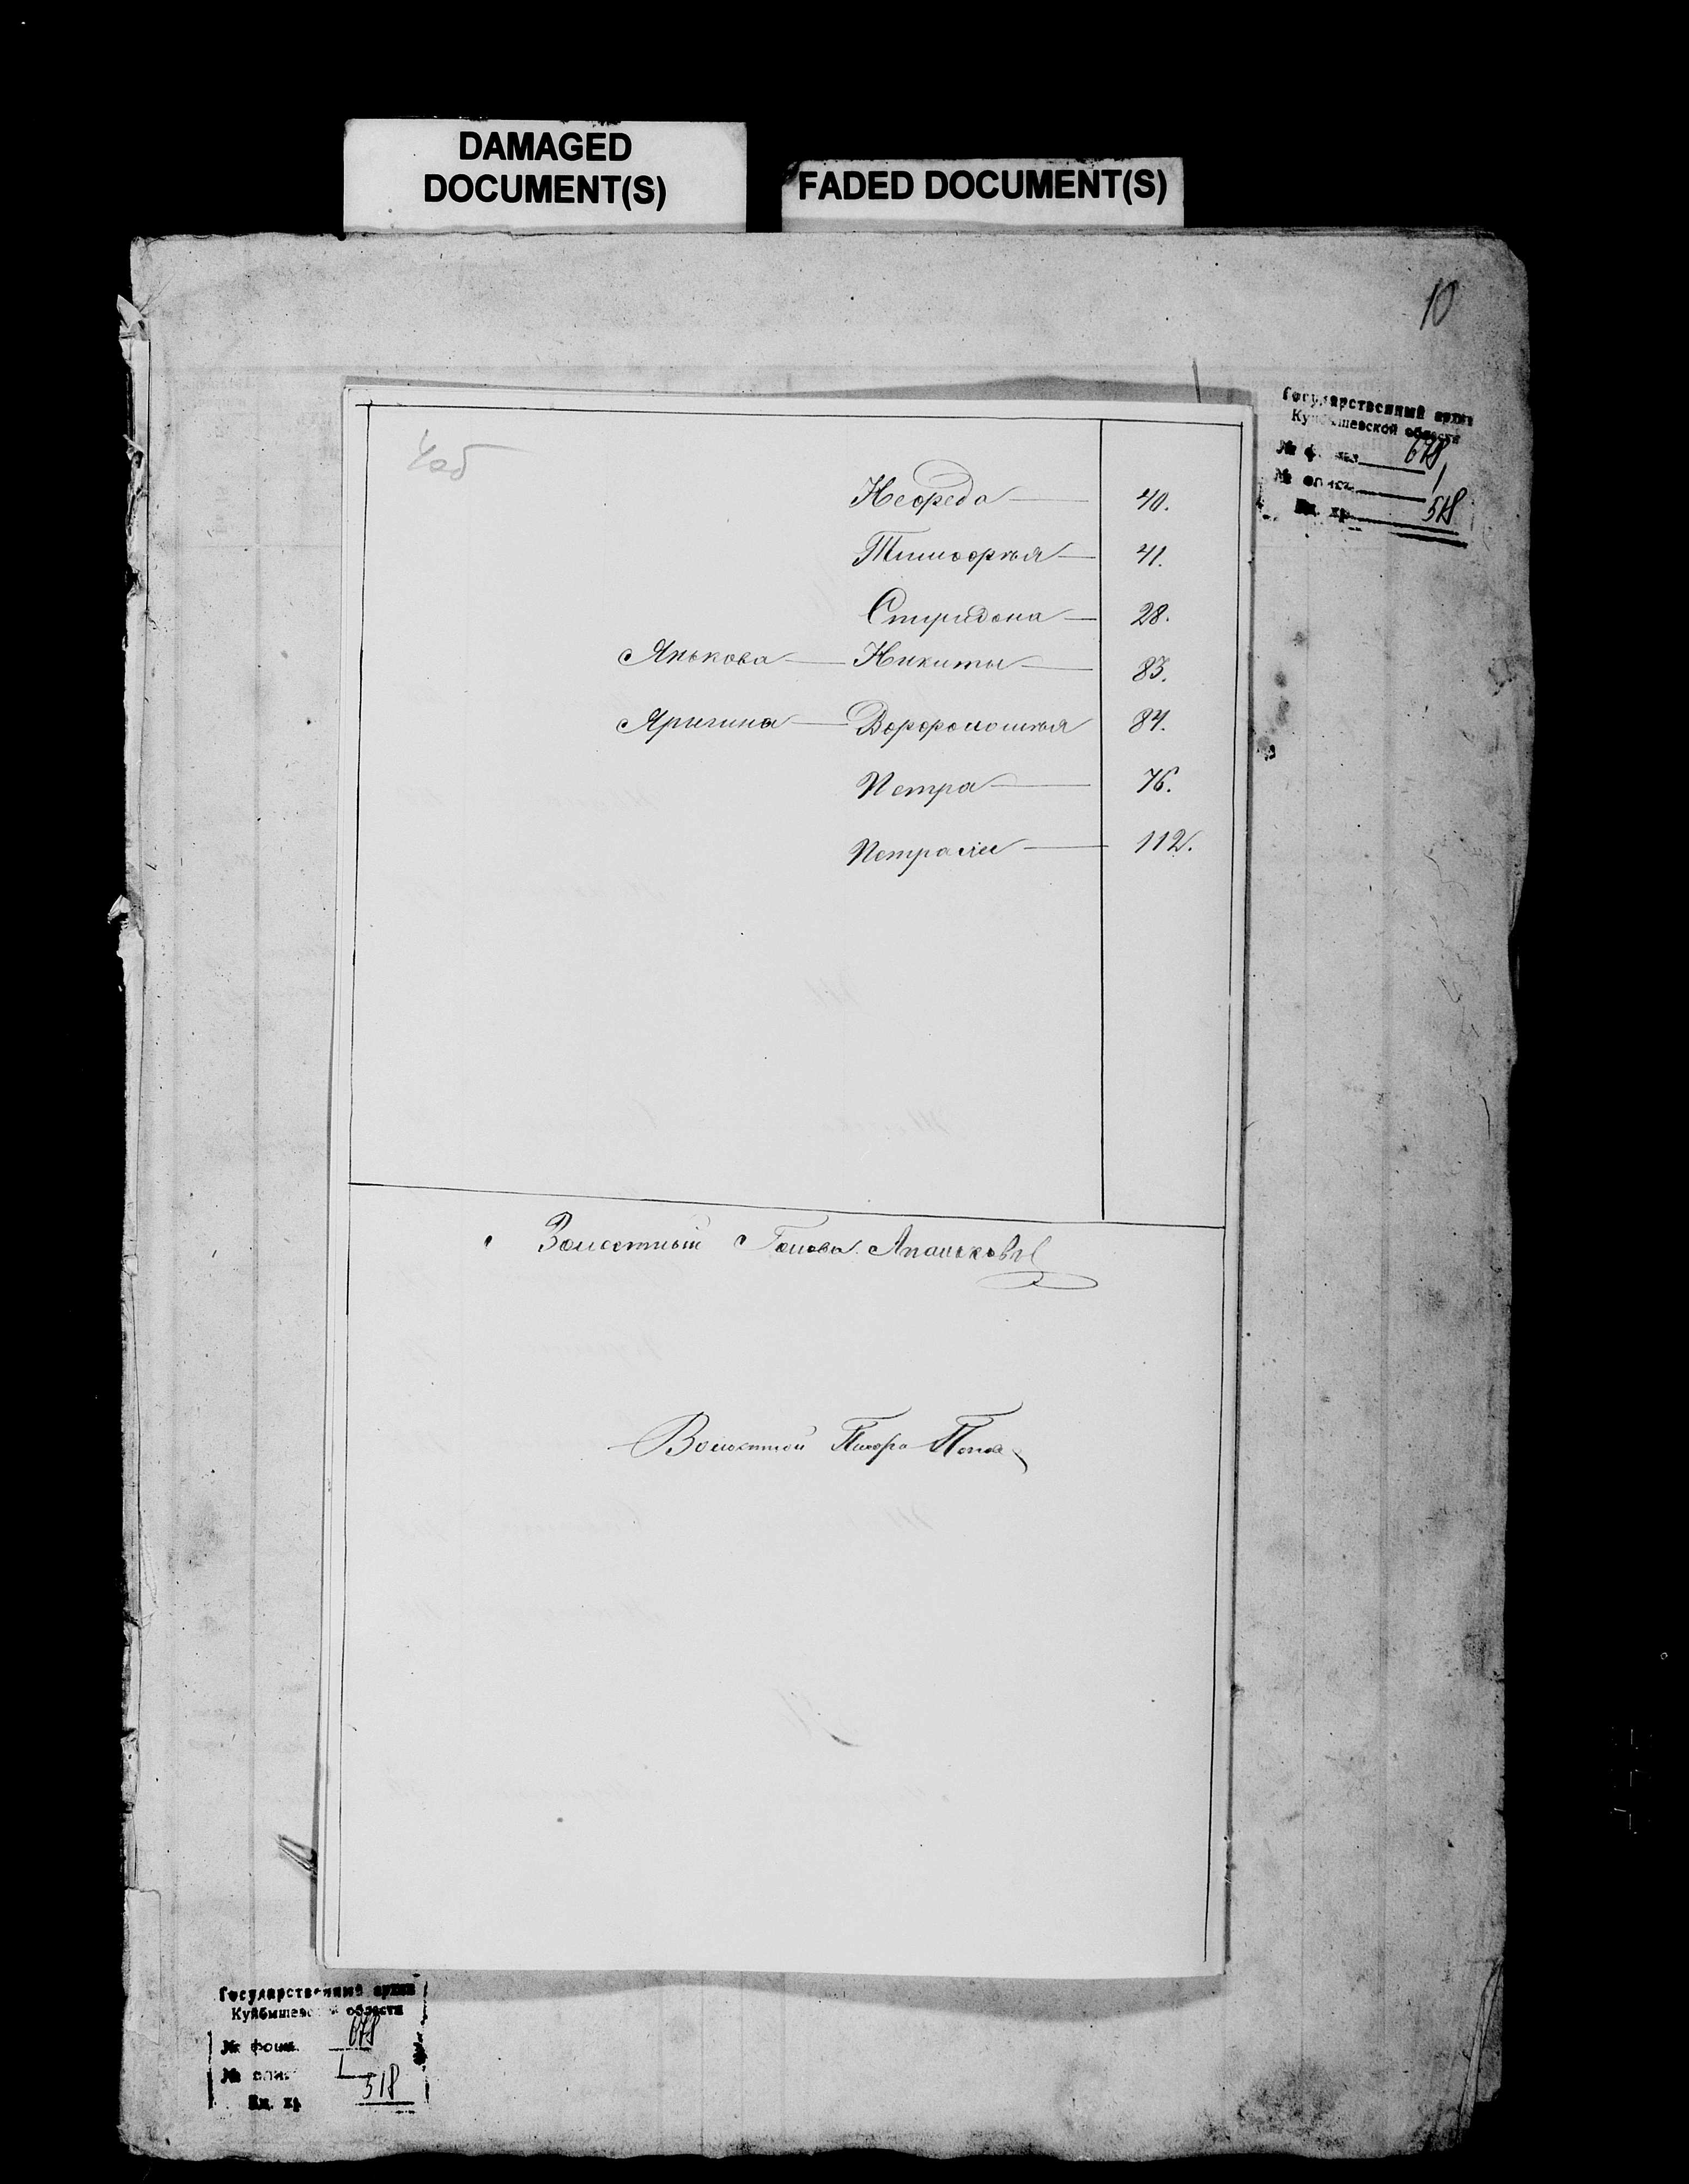 DAMAGED
DOCUMENT(S)
FADED DOCUMENT(S)
10
Государственный архив
Куйбышевской области
№ фонда 678
№ описи 1
Ед. хр. 518
Нефеда 40.
Тимофея 41.
Спиридона 28.
Янькова Никиты 83.
Яригина 84.
Петра 76.
112.
Волостный Голова
Волостной
Государственный архив
Куйбышевской области
№ фонд. 678
№ опис 1
Ед. хр 518